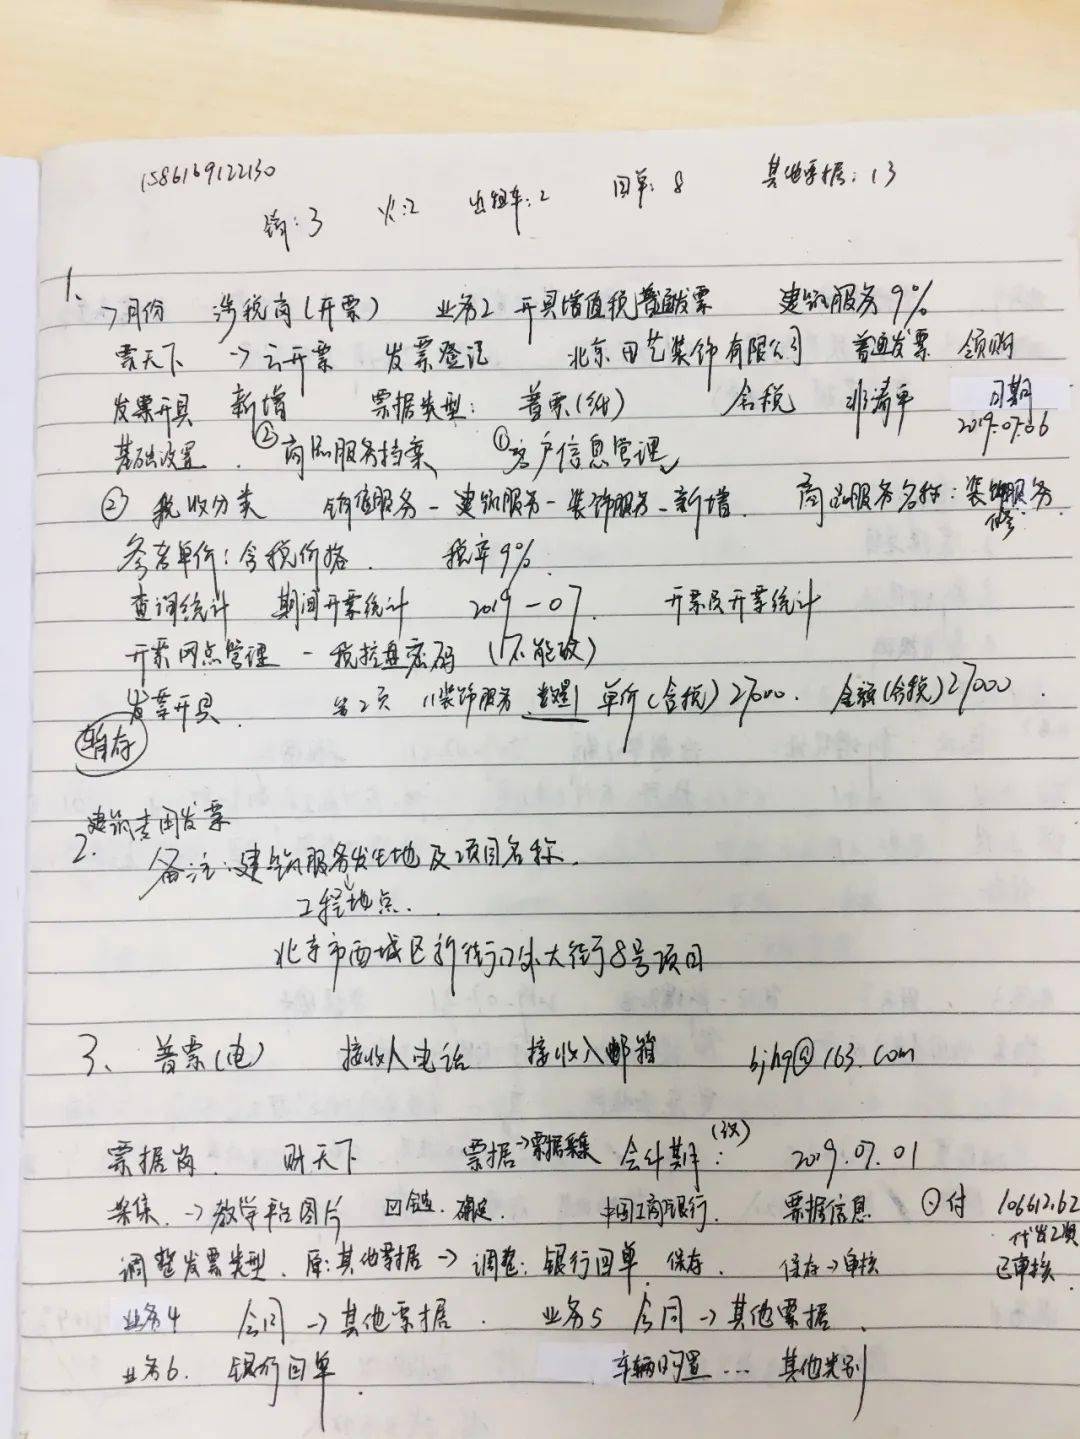 158616912230
销:3 火:2 出租车:2 回单:8 其他票据:13
1、
7月份 涉税岗(开票) 业务2 开具增值税普通发票 建筑服务9%
票天下 →云开票 发票登记 北京田艺装饰有限公司 普通发票 领购
发票开具 新增 票据类型: 普票(纸) 含税 非清单 日期
2019.07.06
基础设置. ②商品服务档案 ①客户信息管理
② 税收分类 销售服务-建筑服务-装饰服务-新增. 商品服务名称:装饰服务
修
参考单价:含税价格. 税率9%.
查询统计 期间开票统计 2019-07. 开票员开票统计
开票网点管理 - 税控盘密码 (不能改)
发票开具. 第2页 装饰服务 数量1 单价(含税)27000. 金额(含税)27000.
暂存
建筑专用发票
2. 备注:建筑服务发生地及项目名称.
工程地点.
北京市西城区新街口外大街8号项目
3、普票(电) 接收人电话 接收人邮箱 bjhg@163.com
票据岗. 财天下 票据→票据采集 会计期间: 2019.07.01
采集.→教学平台图片 回单. 确定. 中国工商银行. 票据信息 付 106612.62
代发工资
调整发票类型. 原:其他票据→调整:银行回单. 保存. 保存→审核 已审核.
业务4 合同→其他票据. 业务5 合同→其他票据.
业务6. 银行回单. 车辆购置... 其他类别